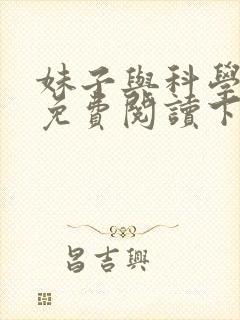 妹子與科學
免費閱讀下
昌吉興